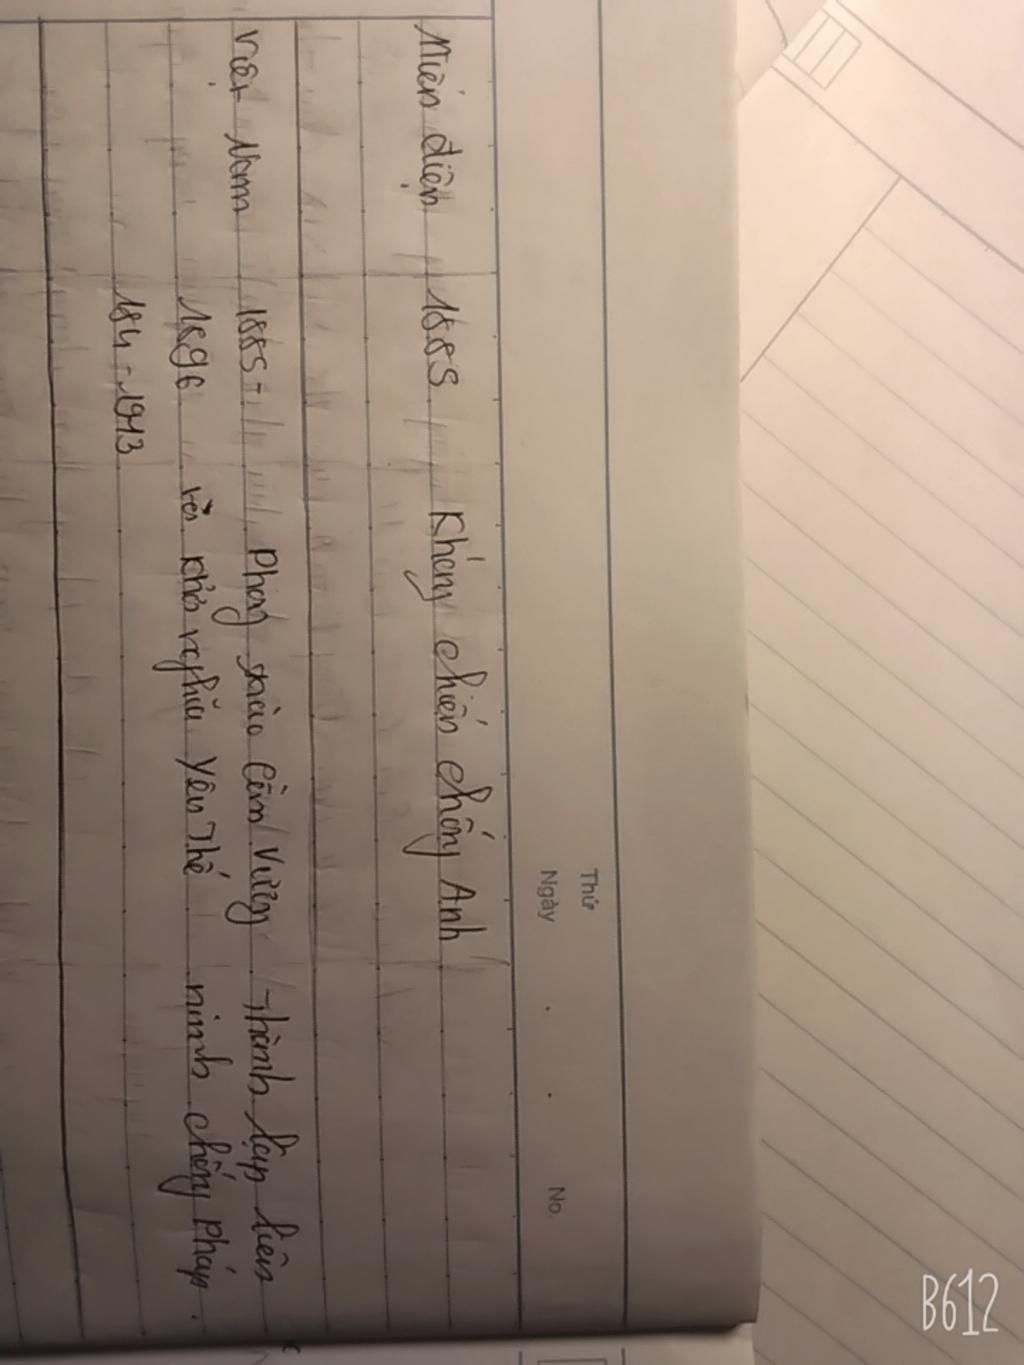 Thứ
Ngày . . No.
Miến điện 1885 Kháng chiến chống Anh
Việt Nam 1885- Phong trào Cần Vương Thành lập liên
1896 và khởi nghĩa Yên Thế minh chống Pháp.
184-1913
B612